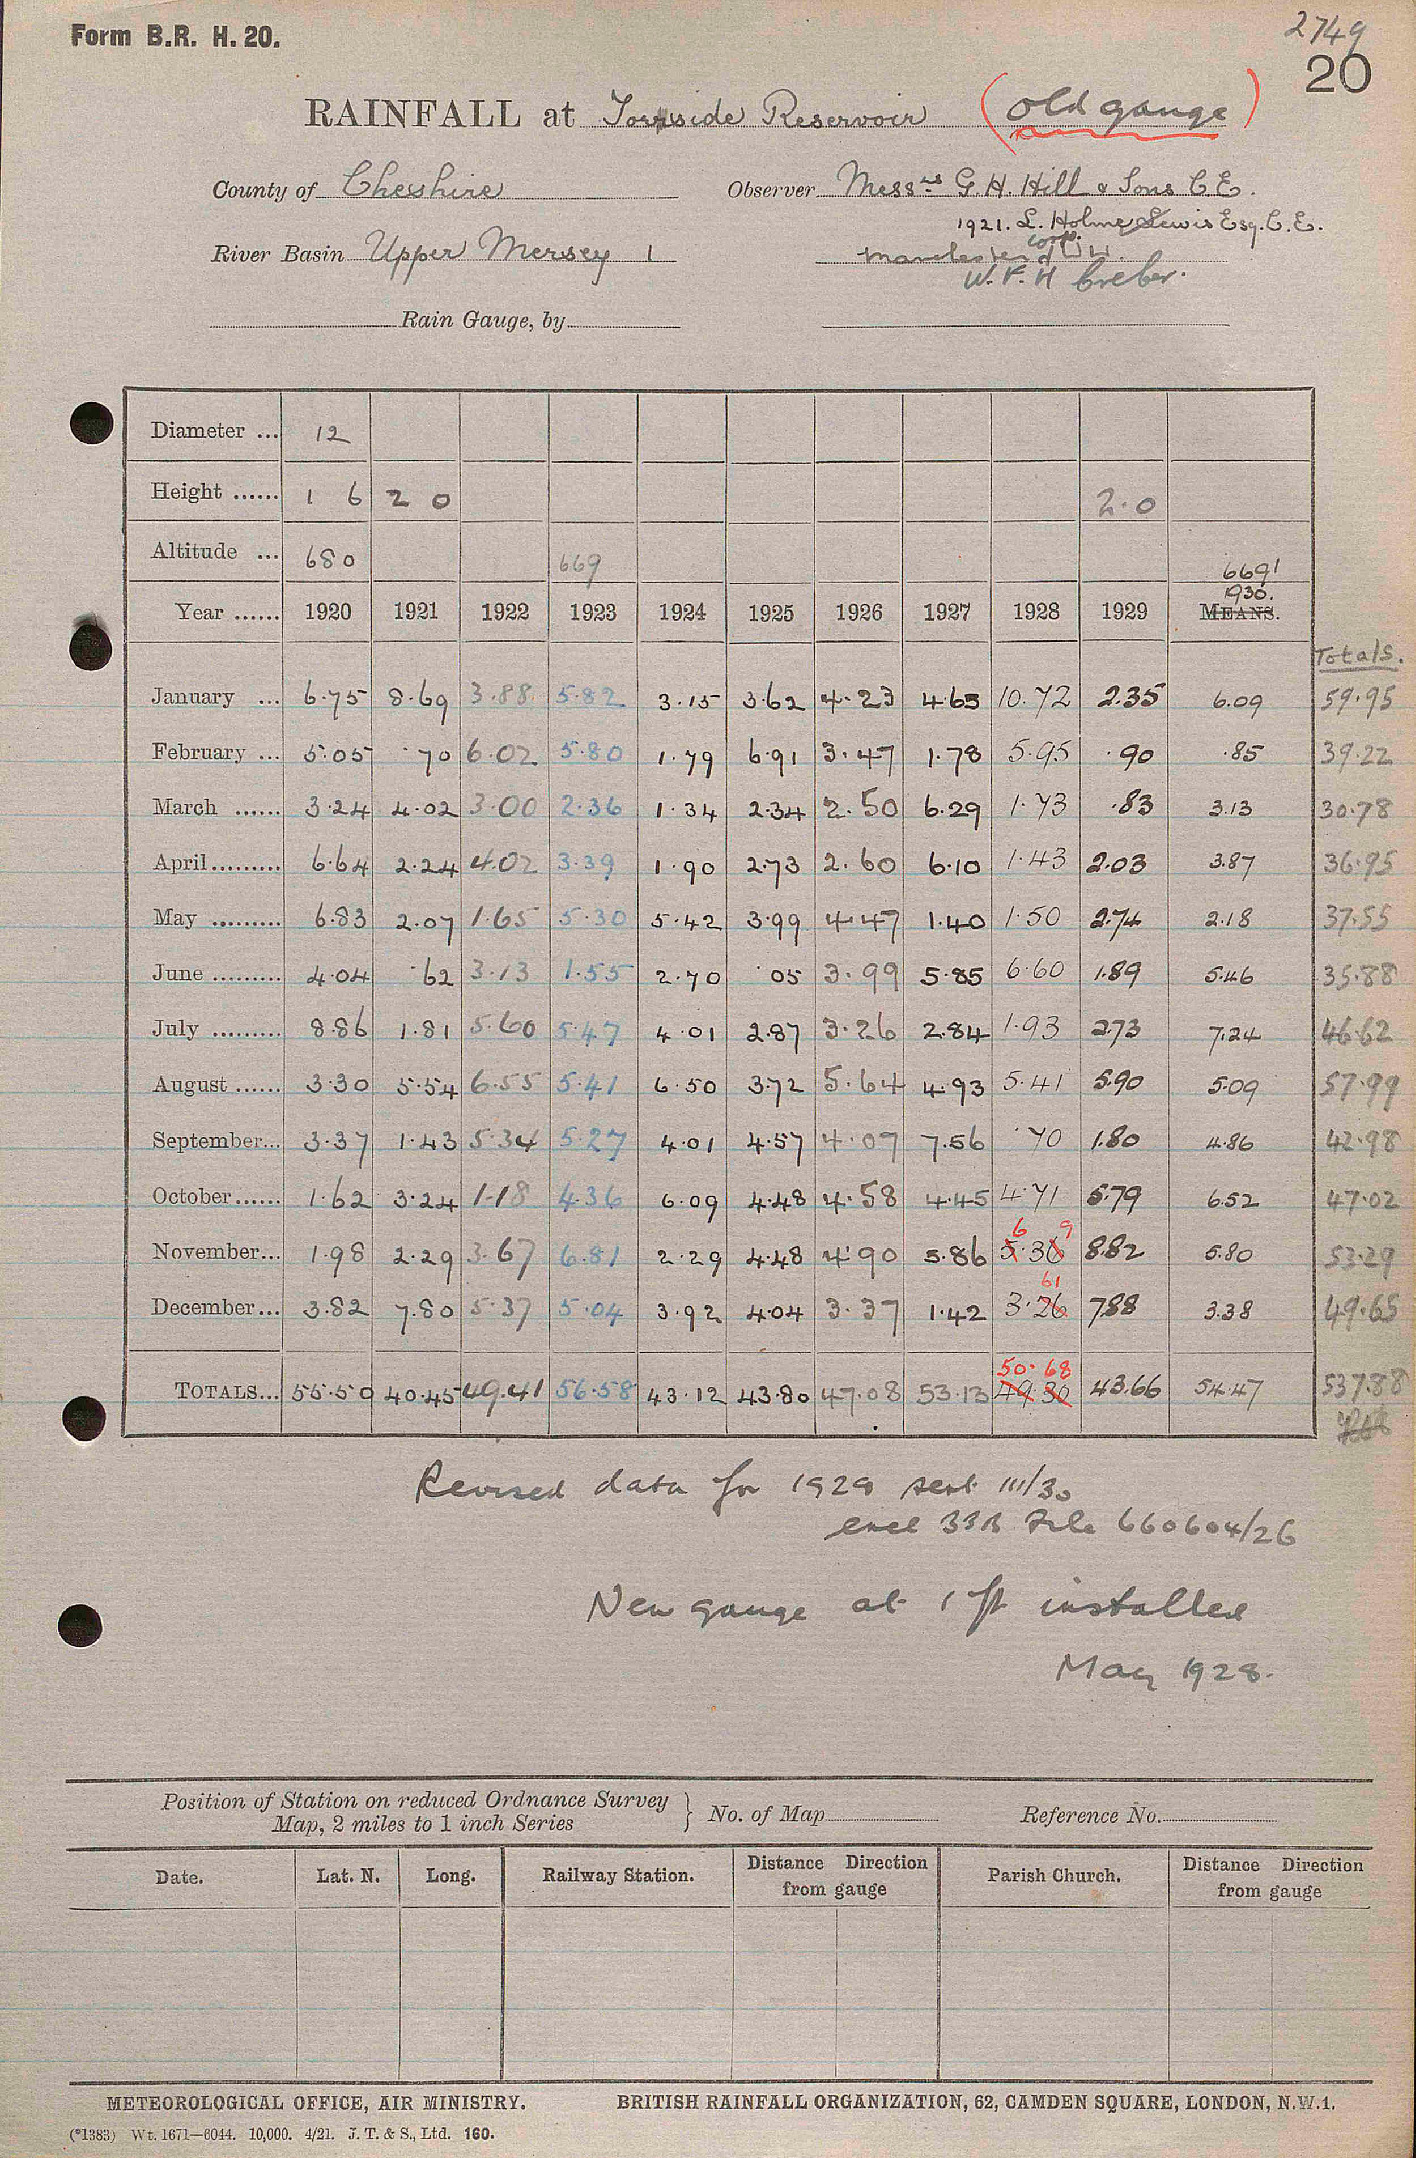 Form B.R. H. 20.
2749
20
RAINFALL at Torside Reservoir (Old gauge)
County of Cheshire Observer Messrs G. H. Hill & Sons C.E.
1921. L. Holme Lewis Esq. C.E.
River Basin Upper Mersey 1 Manchester Corp. W.W.
W. F. H Creber.
Rain Gauge, by
Diameter ... 12
Height ...... 1 6 2 0 2.0
Altitude ... 680 669 669'
1930.
Year ...... 1920 1921 1922 1923 1924 1925 1926 1927 1928 1929 MEANS.
Totals.
January ... 6.75 8.69 3.88 5.82 3.15 3.62 4.23 4.65 10.72 2.35 6.09 59.95
February ... 5.05 .70 6.02 5.80 1.79 6.91 3.47 1.78 5.95 .90 .85 39.22
March ...... 3.24 4.02 3.00 2.36 1.34 2.34 2.50 6.29 1.73 .83 3.13 30.78
April ......... 6.64 2.24 4.02 3.39 1.90 2.73 2.60 6.10 1.43 2.03 3.87 36.95
May ......... 6.83 2.07 1.65 5.30 5.42 3.99 4.47 1.40 1.50 2.74 2.18 37.55
June ......... 4.04 .62 3.13 1.55 2.70 .05 3.99 5.85 6.60 1.89 5.46 35.88
July ......... 8.86 1.81 5.60 5.47 4.01 2.87 3.26 2.84 1.93 2.73 7.24 46.62
August ...... 3.30 5.54 6.55 5.41 6.50 3.72 5.64 4.93 5.41 5.90 5.09 57.99
September... 3.37 1.43 5.34 5.27 4.01 4.57 4.07 7.56 .70 1.80 4.86 42.98
October ...... 1.62 3.24 1.18 4.36 6.09 4.48 4.58 4.45 4.71 5.79 6.52 47.02
6 9
November... 1.98 2.29 3.67 6.81 2.29 4.48 4.90 5.86 5.36 8.82 5.80 53.29
61
December... 3.82 7.80 5.37 5.04 3.92 4.04 3.37 1.42 3.26 7.88 3.38 49.65
50.68
TOTALS... 55.50 40.45 49.41 56.58 43.12 43.80 47.08 53.13 49.30 43.66 54.47 537.88
Revised data for 1929 sent 111/30
encl 33B File 660604/26
New gauge at 1 ft installed
May 1928.
Position of Station on reduced Ordnance Survey
Map, 2 miles to 1 inch Series } No. of Map Reference No.
Date. Lat. N. Long. Railway Station. Distance Direction
from gauge Parish Church. Distance Direction
from gauge
METEOROLOGICAL OFFICE, AIR MINISTRY. BRITISH RAINFALL ORGANIZATION, 62, CAMDEN SQUARE, LONDON, N.W.1.
(*1383) Wt. 1671—6044. 10,000. 4/21. J. T. & S., Ltd. 160.